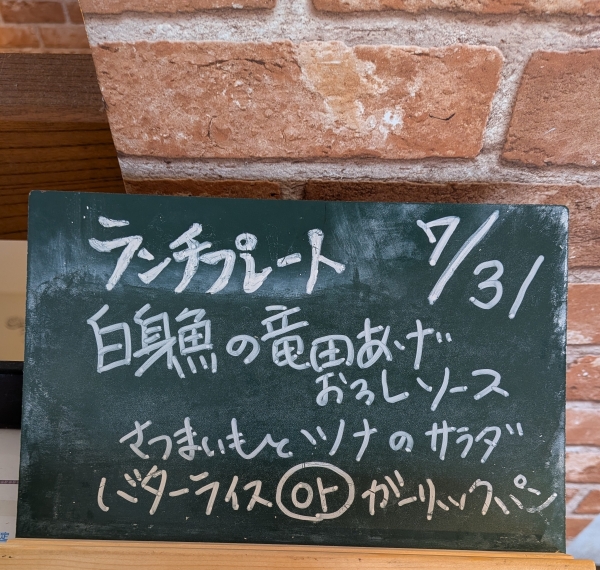 ランチプレート 7/31
白身魚の竜田あげ
おろしソース
さつまいもとツナのサラダ
バターライス or ガーリックパン